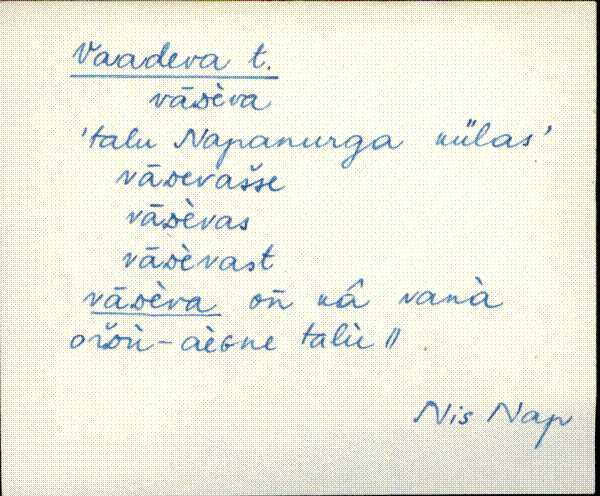 Vaadeva t.
vāᴅèva
'talu Napanurga külas'
vāᴅevašse
vāᴅèvas
vāᴅèvast
vāᴅèva on̄ kâ vanà
oržù-aèɢne talù ||
Nis Nap